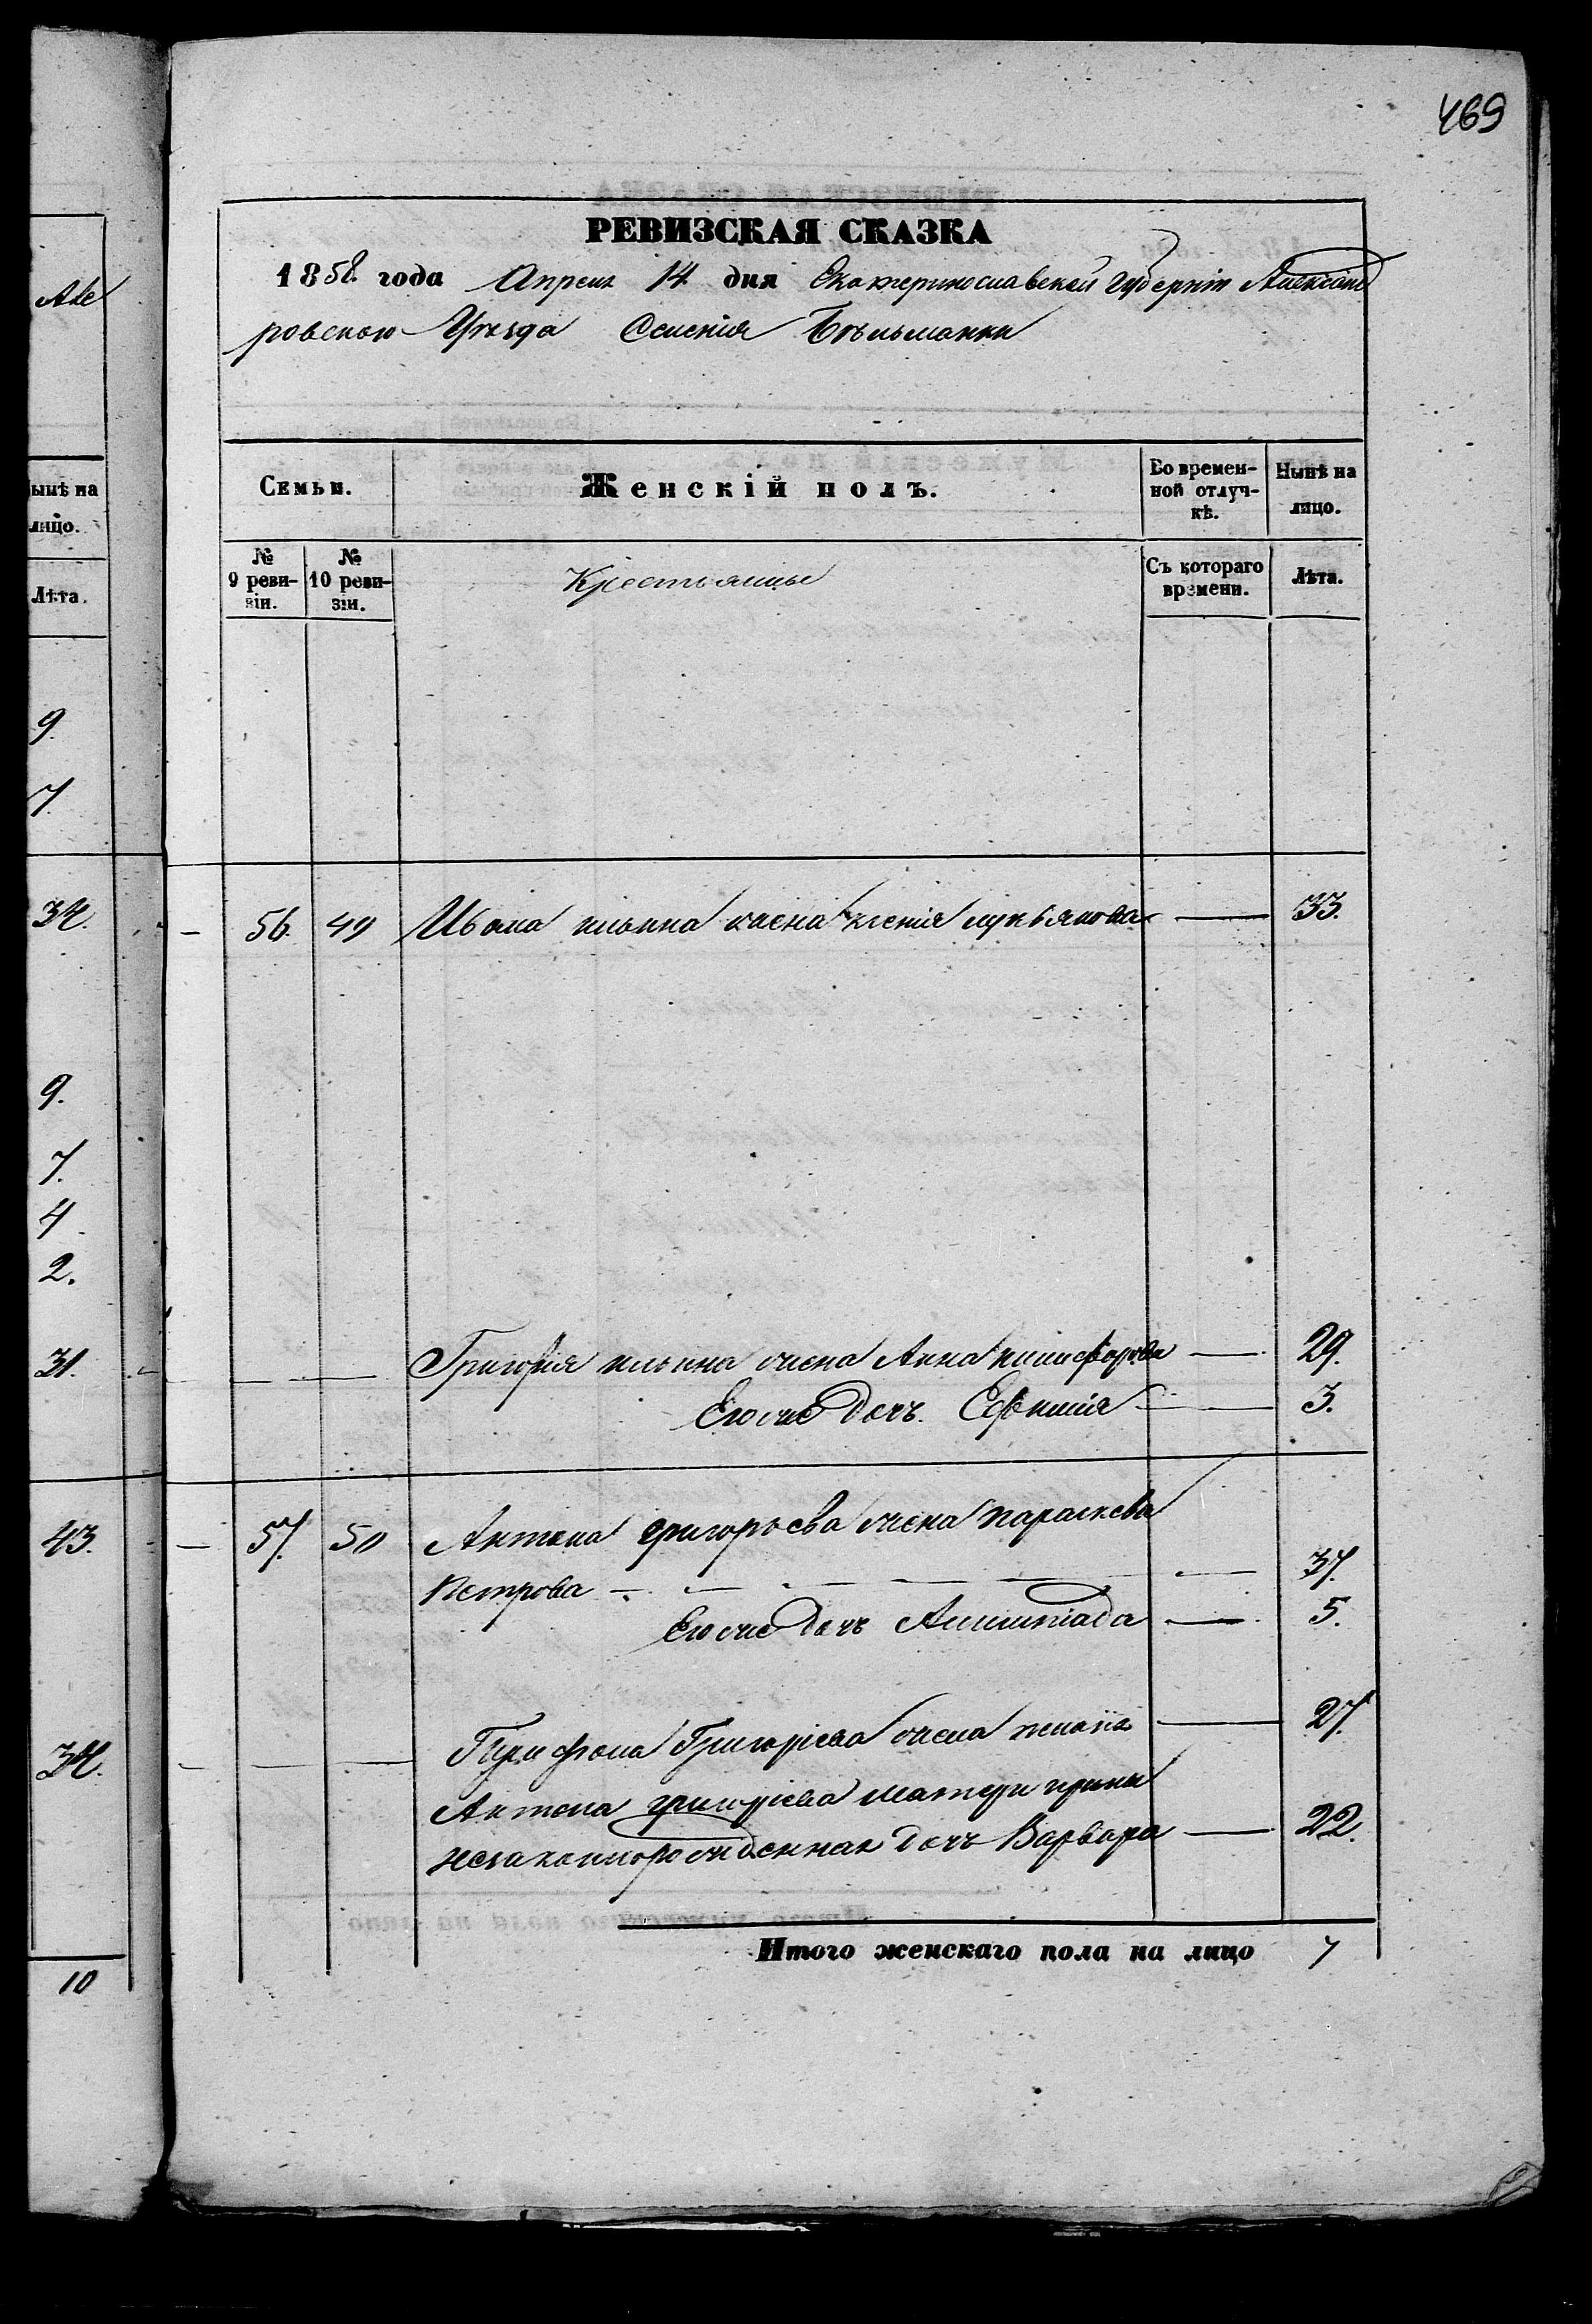 469
РЕВИЗСКАЯ СКАЗКА
1858. года Апреля 14 дня Екатеринославской Губерніи Александ
ровского Уезда Селенія Бѣльманки
Але
ынѣ на
лицо.
Лѣта.
9
7.
34.
9.
7.
4
2.
31.
43.
34.
10
Семьи.
Женскій полъ.
Во времен-
ной отлуч-
кѣ.
Нынѣ на
лицо.
№
9 реви-
зіи.
№
10 реви-
зіи.
Крестьянцы
Съ котораго
времени.
Лѣта.
56. 49 Ивана ильина жена Ксенія лукьянова 33.
Григорія ильина жена Анна никифорова 29.
Его же дочь. Ефимія 3.
57. 50 Антона григорьева жена параскева
Петрова 37.
Его же дочь 5.
Трифона Григоріева жена 27.
Антона григоріева матери ирины
незаконнорожденная дочь Варвара 22.
Итого женскаго пола на лицо 7